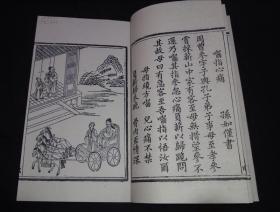 嚙指心痛
孫如僅書
周曾參字子輿孔子弟子事母至孝參
嘗採薪山中家有客至母無措望參不
還乃嚙其指參忽心痛負薪以歸跪問
其故母曰有急客至吾嚙指以悟汝爾
母指纔方嚙 兒心痛不禁
負薪歸未晚 骨肉至情深